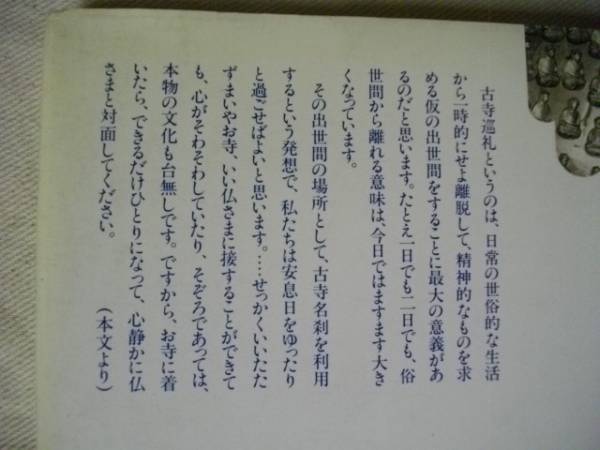 古寺巡礼というのは、日常の世俗的な生活
から一時的にせよ離脱して、精神的なものを求
める仮の出世間をすることに最大の意義があ
るのだと思います。たとえ一日でも二日でも、俗
世間から離れる意味は、今日ではますます大き
くなっています。
その出世間の場所として、古寺名刹を利用
するという発想で、私たちは安息日をゆったり
と過ごせばよいと思います。……せっかくいいたた
ずまいやお寺、いい仏さまに接することができて
も、心がそわそわしていたり、そぞろであっては、
本物の文化も台無しです。ですから、お寺に着
いたら、できるだけひとりになって、心静かに仏
さまと対面してください。
（本文より）